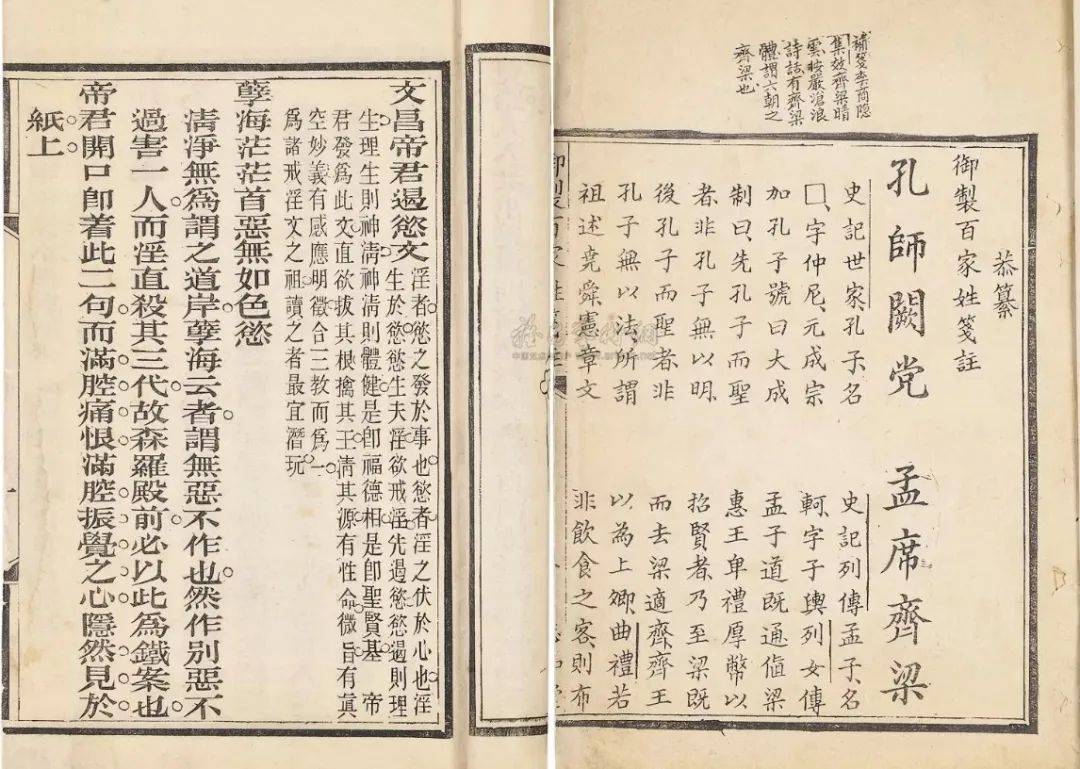 補箋李商隐
集效齊梁晴
雲按嚴滄浪
詩話有齊梁
體謂六朝之
齊梁也
恭纂
御製百家姓箋註
孔師闕党 孟席齊梁
史記世家孔子名
囗字仲尼元成宗
加孔子號曰大成
制曰先孔子而聖
者非孔子無以明
後孔子而聖者非
孔子無以法所謂
祖述尭舜憲章文
史記列傳孟子名
軻字子輿列女傳
孟子道既通値梁
惠王卑禮厚幣以
招賢者乃至梁既
而去梁適齊齊王
以為上卿曲禮若
非飲食之客則布
文昌帝君遏慾文
淫者慾之發於事也慾者淫之伏於心也淫
生於慾慾生夫淫欲戒淫先遏慾慾遏則理
生理生則神淸神淸則體健是卽福德相是卽聖賢基 帝
君發爲此文直欲拔其根擒其王淸其源有性命微旨有眞
空妙義有感應明徵合三教而爲一
爲諸戒淫文之祖讀之者最宜潛玩
孽海茫茫首惡無如色慾
淸淨無爲謂之道岸孽海云者謂無惡不作也然作別惡不
過害一人而淫直殺其三代故森羅殿前必以此爲鐵案也
帝君開口卽着此二句而滿腔痛恨滿腔振覺之心隱然見於
紙上